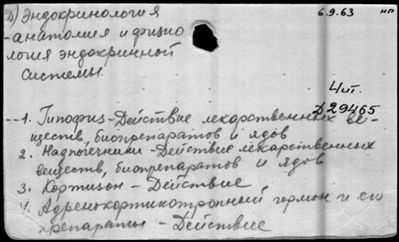 Д) Эндокринология 6.9.63 нр
-анатомия и физио
логия эндокринной
системы.
4 ит.
Д 29465
1. Гипофиз-Действие лекарственных ве-
ществ, биопрепаратов и ядов
2. Надпочечники-Действие лекарственных
веществ, биопрепаратов и ядов
3. Кортизон - Действие
4. Адренокортикотропный гормон и его
препараты - Действие